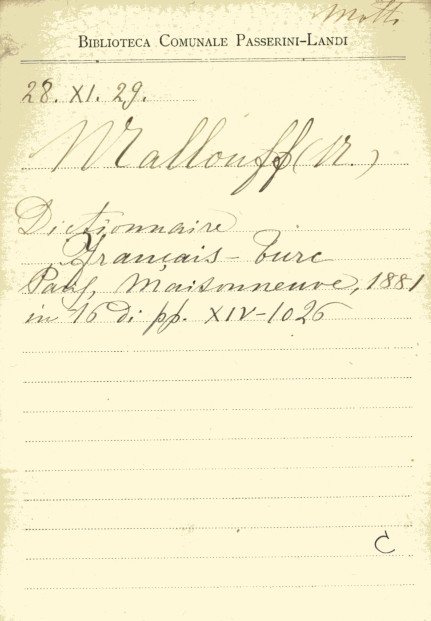 Mott.
BIBLIOTECA COMUNALE PASSERINI-LANDI
28. XI. 29.
Mallouff (N.)
Dictionnaire
Français - turc
Paris, Maisonneuve, 1881
in 16 di pp. XIV-1026
C